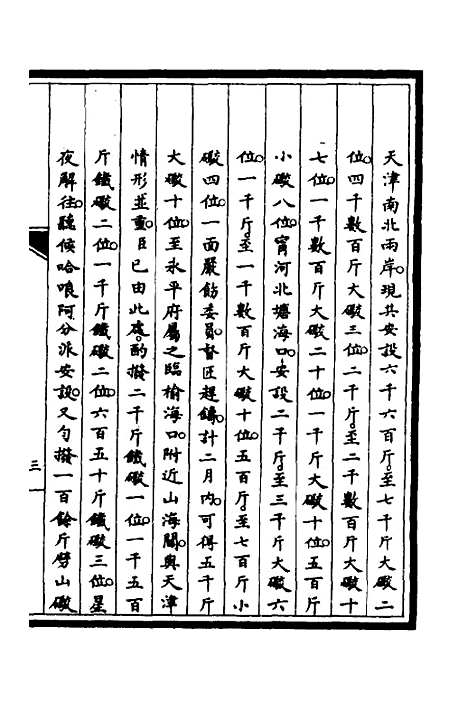 天津南北兩岸。現共安設六千六百斤。至七千斤大礮二
位。四千數百斤大礮三位。二千斤。至二千數百斤大礮十
七位。一千數百斤大礮二十位。一千斤大礮十位。五百斤
小礮八位。甯河北塘海口。安設二千斤。至三千斤大礮六
位。一千斤。至一千數百斤大礮十位。五百斤。至七百斤小
礮四位。一面嚴飭委員。督匠趕鑄。計二月內。可得五千斤
大礮十位。至永平府屬之臨榆海口。附近山海關。與天津
情形並重。臣已由此處。酌撥二千斤鐵礮一位。一千五百
斤鐵礮二位。一千斤鐵礮二位。六百五十斤鐵礮三位。星
夜解往。聽候哈哴阿分派安設。又勻撥一百餘斤劈山礮
三